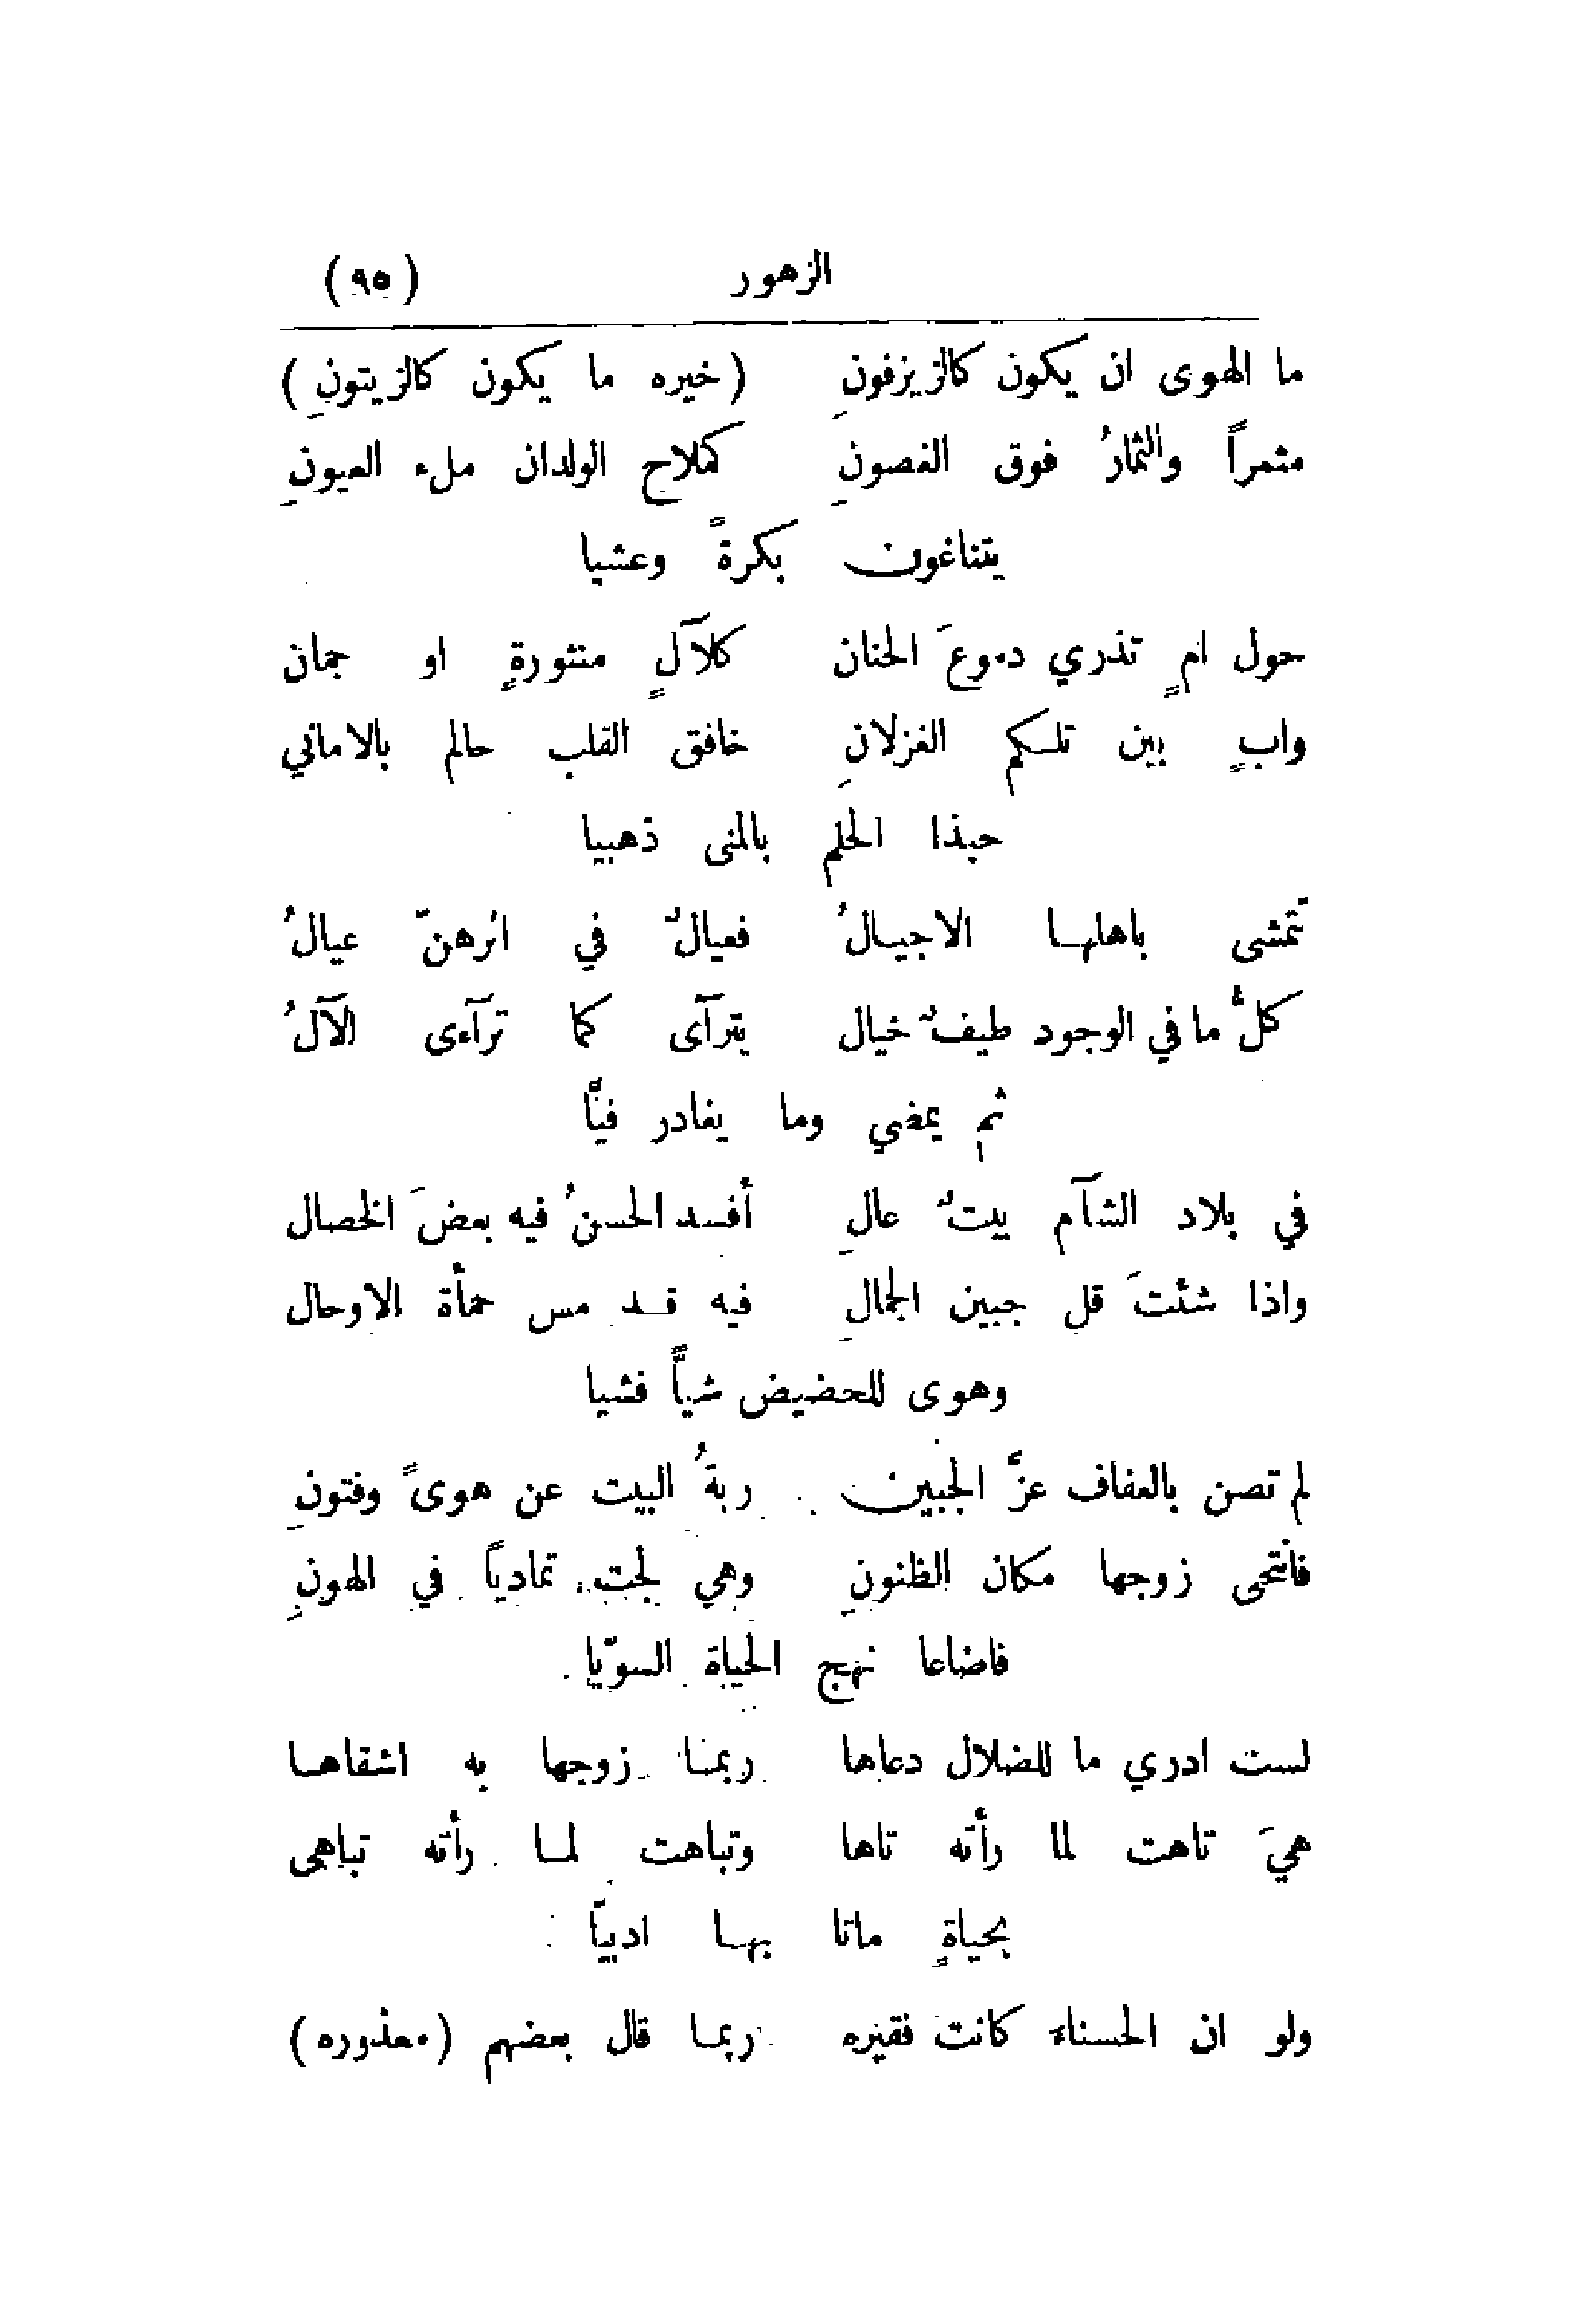 الزهور (٩٥)
ما الهوى ان يكون كالزيزفونِ (خيره ما يكون كالزيتونِ)
مثمراً والثمارُ فوق الغصونِ كملاحِ الولدان ملء العيونِ
يتناغون بكرةً وعشيا
حول امٍ تذري دموعَ الحنان كلآلٍ منثورةٍ او جمان
وابٍ بين تلكم الغزلانِ خافق القلب حالم بالاماني
حبذا الحلم بالمنى ذهبيا
تتمشى باهلها الاجيالُ فعيالٌ في اثرهنّ عيالُ
كلُّ ما في الوجود طيفٌ خيال يترآى كما ترآءى الآلُ
ثم يمضي وما يغادر فيَّا
في بلاد الشآم بيتٌ عالِ أفسد الحسنُ فيه بعضَ الخصال
واذا شئتَ قل جبين الجمالِ فيه قد مس حمأة الاوحال
وهوى للحضيض شيأً فشيا
لم تصن بالعفاف عزَّ الجبين ربةُ البيت عن هوىً وفتونِ
فأنتحى زوجها مكان الظنونِ وهي لجت تمادياً في الهونِ
فاضاعا نهج الحياة السوّيا
لست ادري ما للضلال دعاها ربما زوجها به اشقاها
هيَ تاهت لما رأته تاها وتباهت لما رأته تباهى
بحياةٍ ماتا بها ادبيّا
ولو ان الحسناءَ كانت فقيره ربما قال بعضهم (معذوره)